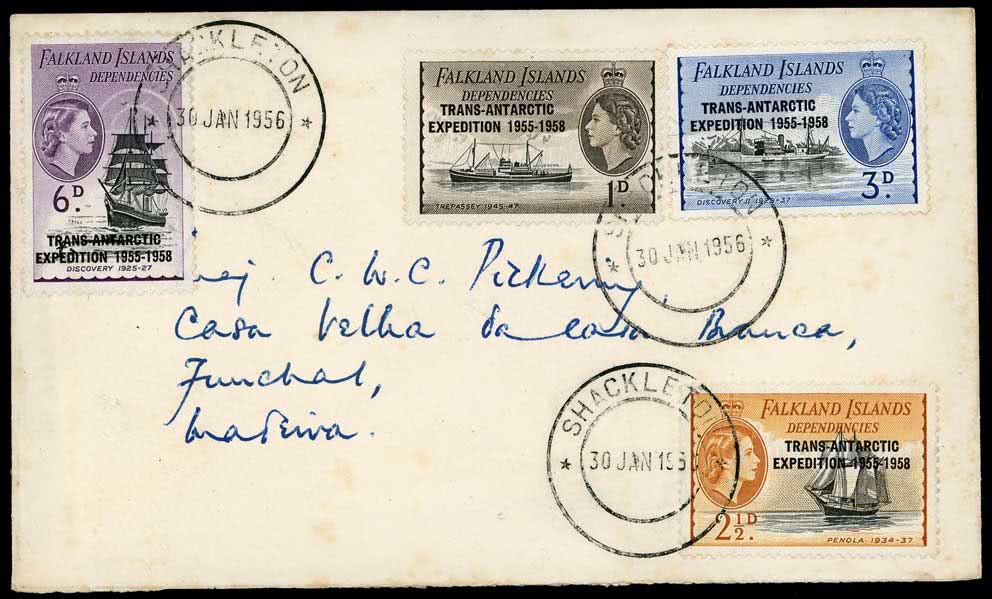 FALKLAND ISLANDS
DEPENDENCIES
6D.
TRANS-ANTARCTIC
EXPEDITION 1955-1958
DISCOVERY 1925-27
SHACKLETON
30 JAN 1956
FALKLAND ISLANDS
DEPENDENCIES
TRANS-ANTARCTIC
EXPEDITION 1955-1958
1D.
TREPASSEY 1945-47
FALKLAND ISLANDS
DEPENDENCIES
TRANS-ANTARCTIC
EXPEDITION 1955-1958
3D.
DISCOVERY II 1929-37
SHACKLETON
30 JAN 1956
C. W. C. Pickering,
Casa Velha da Casa Branca,
Funchal,
Madeira.
SHACKLETON
30 JAN 1956
FALKLAND ISLANDS
DEPENDENCIES
TRANS-ANTARCTIC
EXPEDITION 1955-1958
2½D.
PENOLA 1934-37